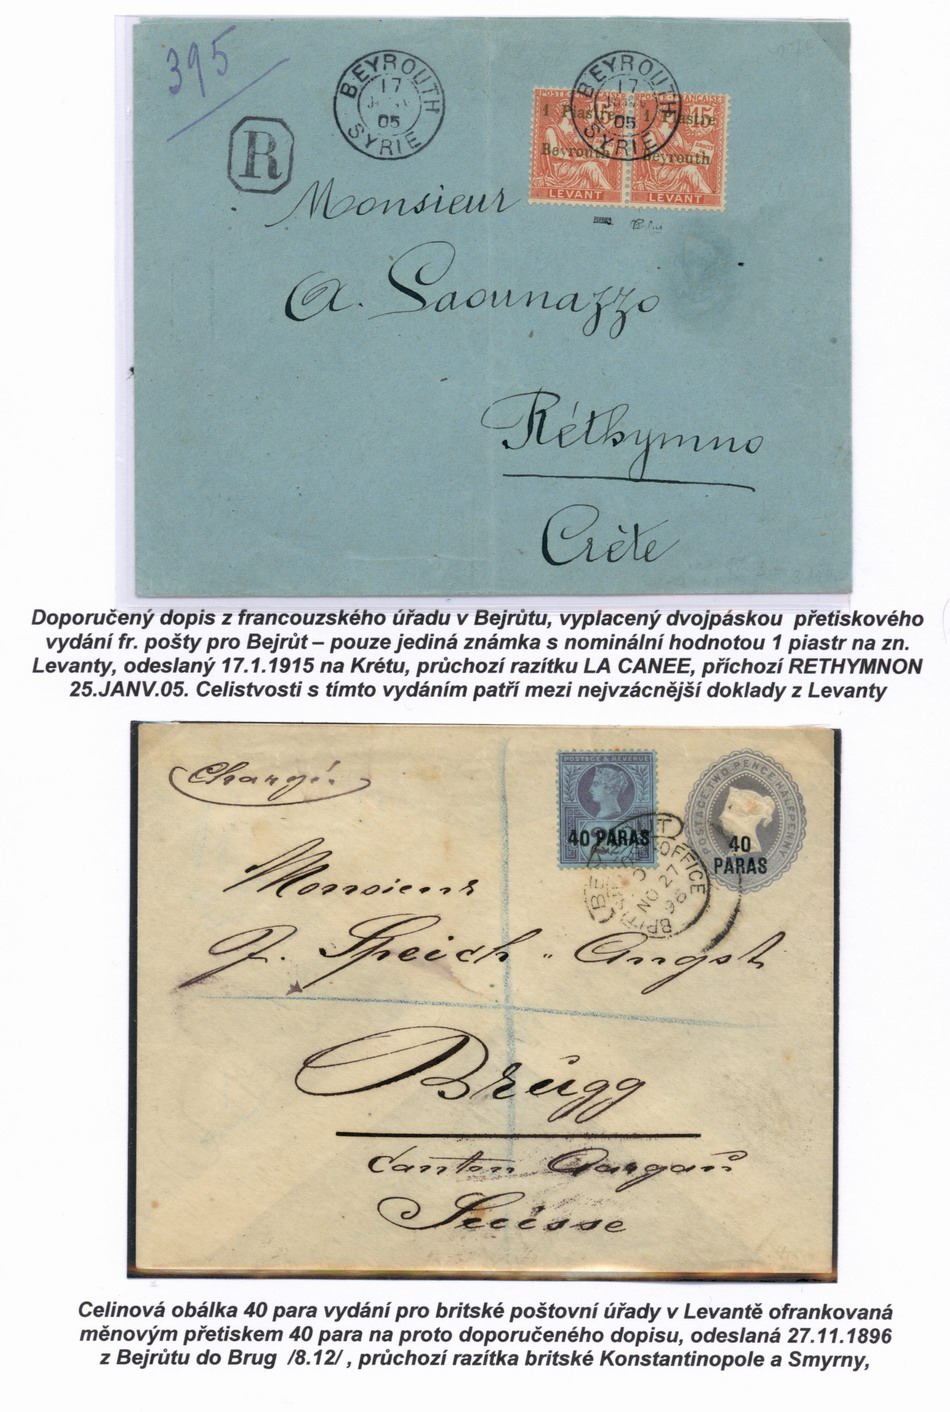 395
BEYROUTH
17
05
SYRIE
R
BEYROUTH
17
05
SYRIE
POSTE FRANÇAISE
1 Piastre
Beyrouth
LEVANT
15
1 Piastre
Beyrouth
LEVANT
Monsieur
A. Saounazzo
Réthymno
Crète
Doporučený dopis z francouzského úřadu v Bejrůtu, vyplacený dvojpáskou přetiskového
vydání fr. pošty pro Bejrůt – pouze jediná známka s nominální hodnotou 1 piastr na zn.
Levanty, odeslaný 17.1.1915 na Krétu, průchozí razítku LA CANEE, příchozí RETHYMNON
25.JANV.05. Celistvosti s tímto vydáním patří mezi nejvzácnější doklady z Levanty
Chargé.
POSTAGE & REVENUE
40 PARAS
POSTAGE TWO PENCE HALFPENNY
40
PARAS
BRITISH POST OFFICE
NO 27
96
Monsieur
J. Speich - Angst
Brügg
Canton Aargau
Suisse
Celinová obálka 40 para vydání pro britské poštovní úřady v Levantě ofrankovaná
měnovým přetiskem 40 para na proto doporučeného dopisu, odeslaná 27.11.1896
z Bejrůtu do Brug /8.12/ , průchozí razítka britské Konstantinopole a Smyrny,